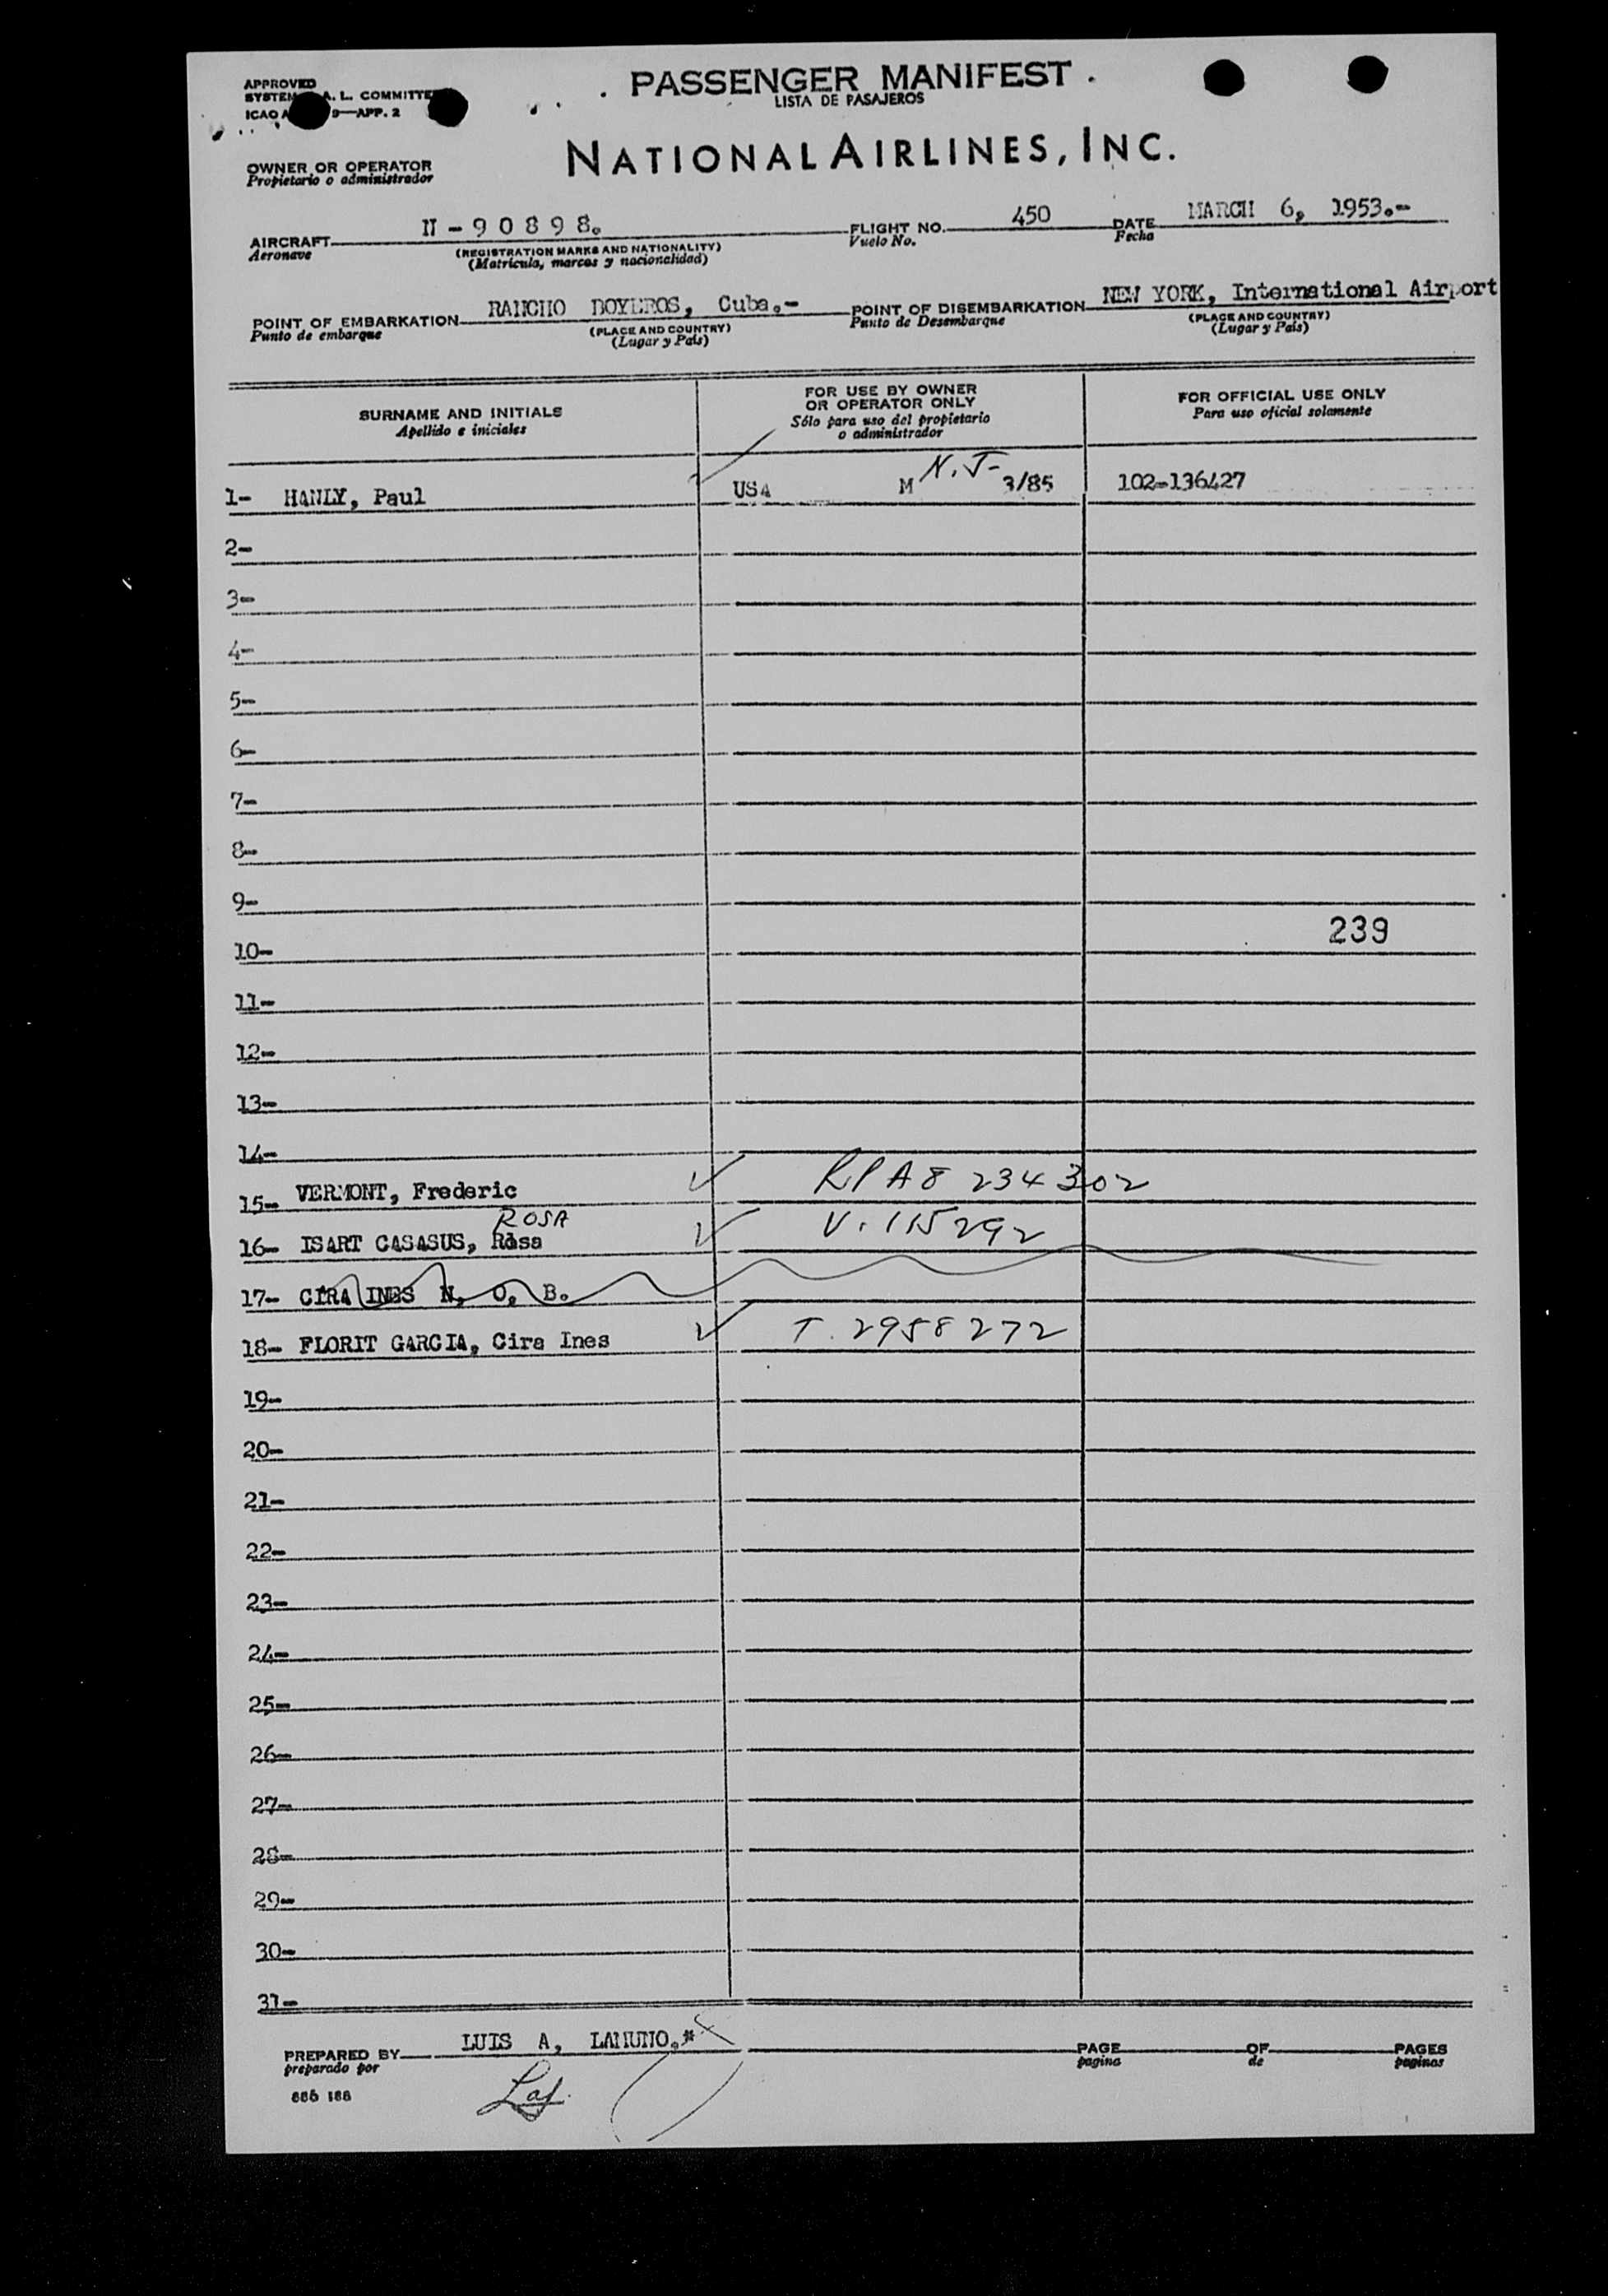 APPROVED
SYSTEM A. L. COMMITTE
ICAO A 9—APP. 2
PASSENGER MANIFEST
LISTA DE PASAJEROS
NATIONAL AIRLINES, INC.
OWNER OR OPERATOR
Propietario o administrador
AIRCRAFT N - 9 0 8 9 8. FLIGHT NO. 450 DATE MARCH 6, 1953.-
Aeronave (REGISTRATION MARKS AND NATIONALITY) Vuelo No. Fecha
(Matrícula, marcas y nacionalidad)
POINT OF EMBARKATION RANCHO BOYEROS, Cuba.- POINT OF DISEMBARKATION NEW YORK, International Airport
Punto de embarque (PLACE AND COUNTRY) Punto de Desembarque (PLACE AND COUNTRY)
(Lugar y País) (Lugar y País)
SURNAME AND INITIALS
Apellido e iniciales
FOR USE BY OWNER
OR OPERATOR ONLY
Sólo para uso del propietario
o administrador
FOR OFFICIAL USE ONLY
Para uso oficial solamente
1- HANLY, Paul USA M N.J- 3/85 102-136427
2-
3-
4-
5-
6-
7-
8-
9-
239
10-
11-
12-
13-
14-
15- VERMONT, Frederic RPA8 234302
ROSA
16- ISART CASASUS, Rosa V. 115292
17- CIRA INES N, O, B.
18- FLORIT GARCIA, Cira Ines T. 2958272
19-
20-
21-
22-
23-
24-
25-
26-
27-
28-
29-
30-
31-
PREPARED BY LUIS A, LAMUNO.* PAGE OF PAGES
preparado por pagina de paginas